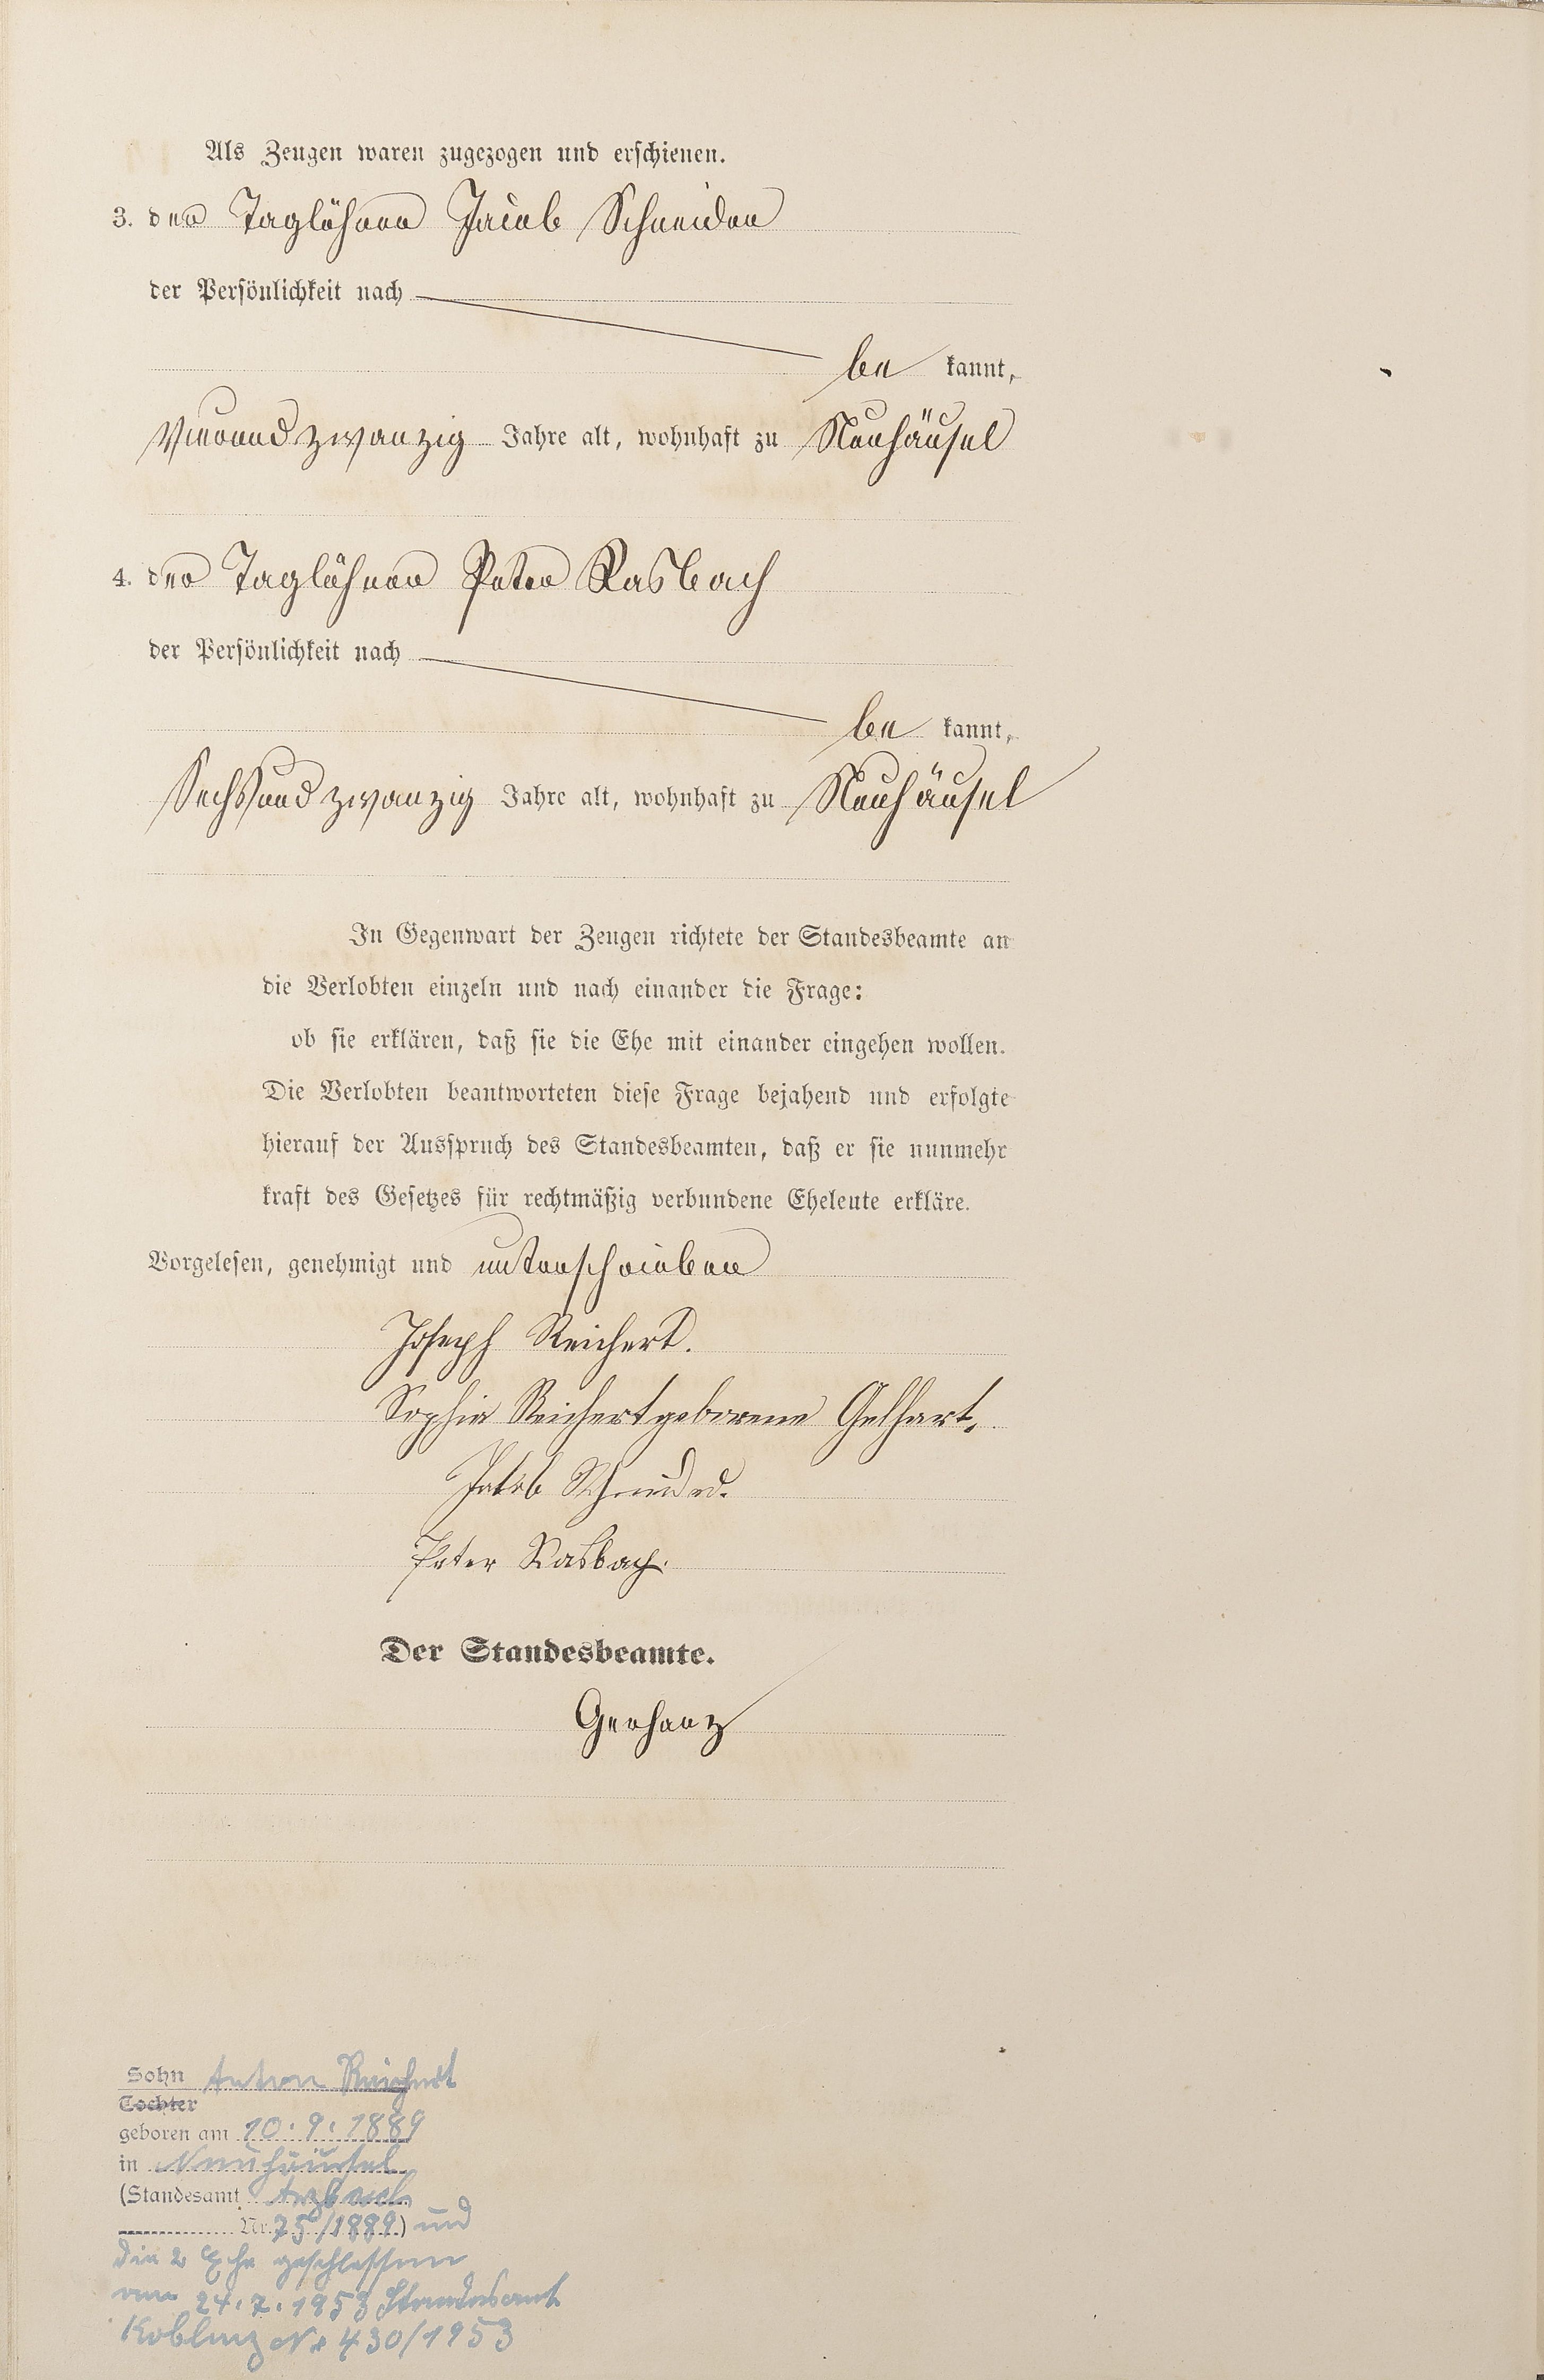 Als Zeugen waren zugezogen und erschienen.
3. der Taglöhner Jacob Schneider
der Persönlichkeit nach
be kannt,
Vierundzwanzig Jahre alt, wohnhaft zu Neuhäusel
4. der Taglöhner Peter Rasbach
der Persönlichkeit nach
be kannt,
Sechsundzwanzig Jahre alt, wohnhaft zu Neuhäusel
In Gegenwart der Zeugen richtete der Standesbeamte an
die Verlobten einzeln und nach einander die Frage:
ob sie erklären, daß sie die Ehe mit einander eingehen wollen.
Die Verlobten beantworteten diese Frage bejahend und erfolgte
hierauf der Ausspruch des Standesbeamten, daß er sie nunmehr
kraft des Gesetzes für rechtmäßig verbundene Eheleute erkläre.
Vorgelesen, genehmigt und unterschrieben
Joseph Reichert.
Sophia Reichert geborene Gelhart.
Jakob Schneider.
Peter Rasbach.
Der Standesbeamte.
Gerharz
Sohn Anton Reichert
Tochter
geboren am 10.9.1889
in Neuhäusel
(Standesamt Arzbach
Nr. 75/1889) und
die 2 Ehe geschlossen
am 24.7.1953 Standesamt
Koblenz Nr 430/1953